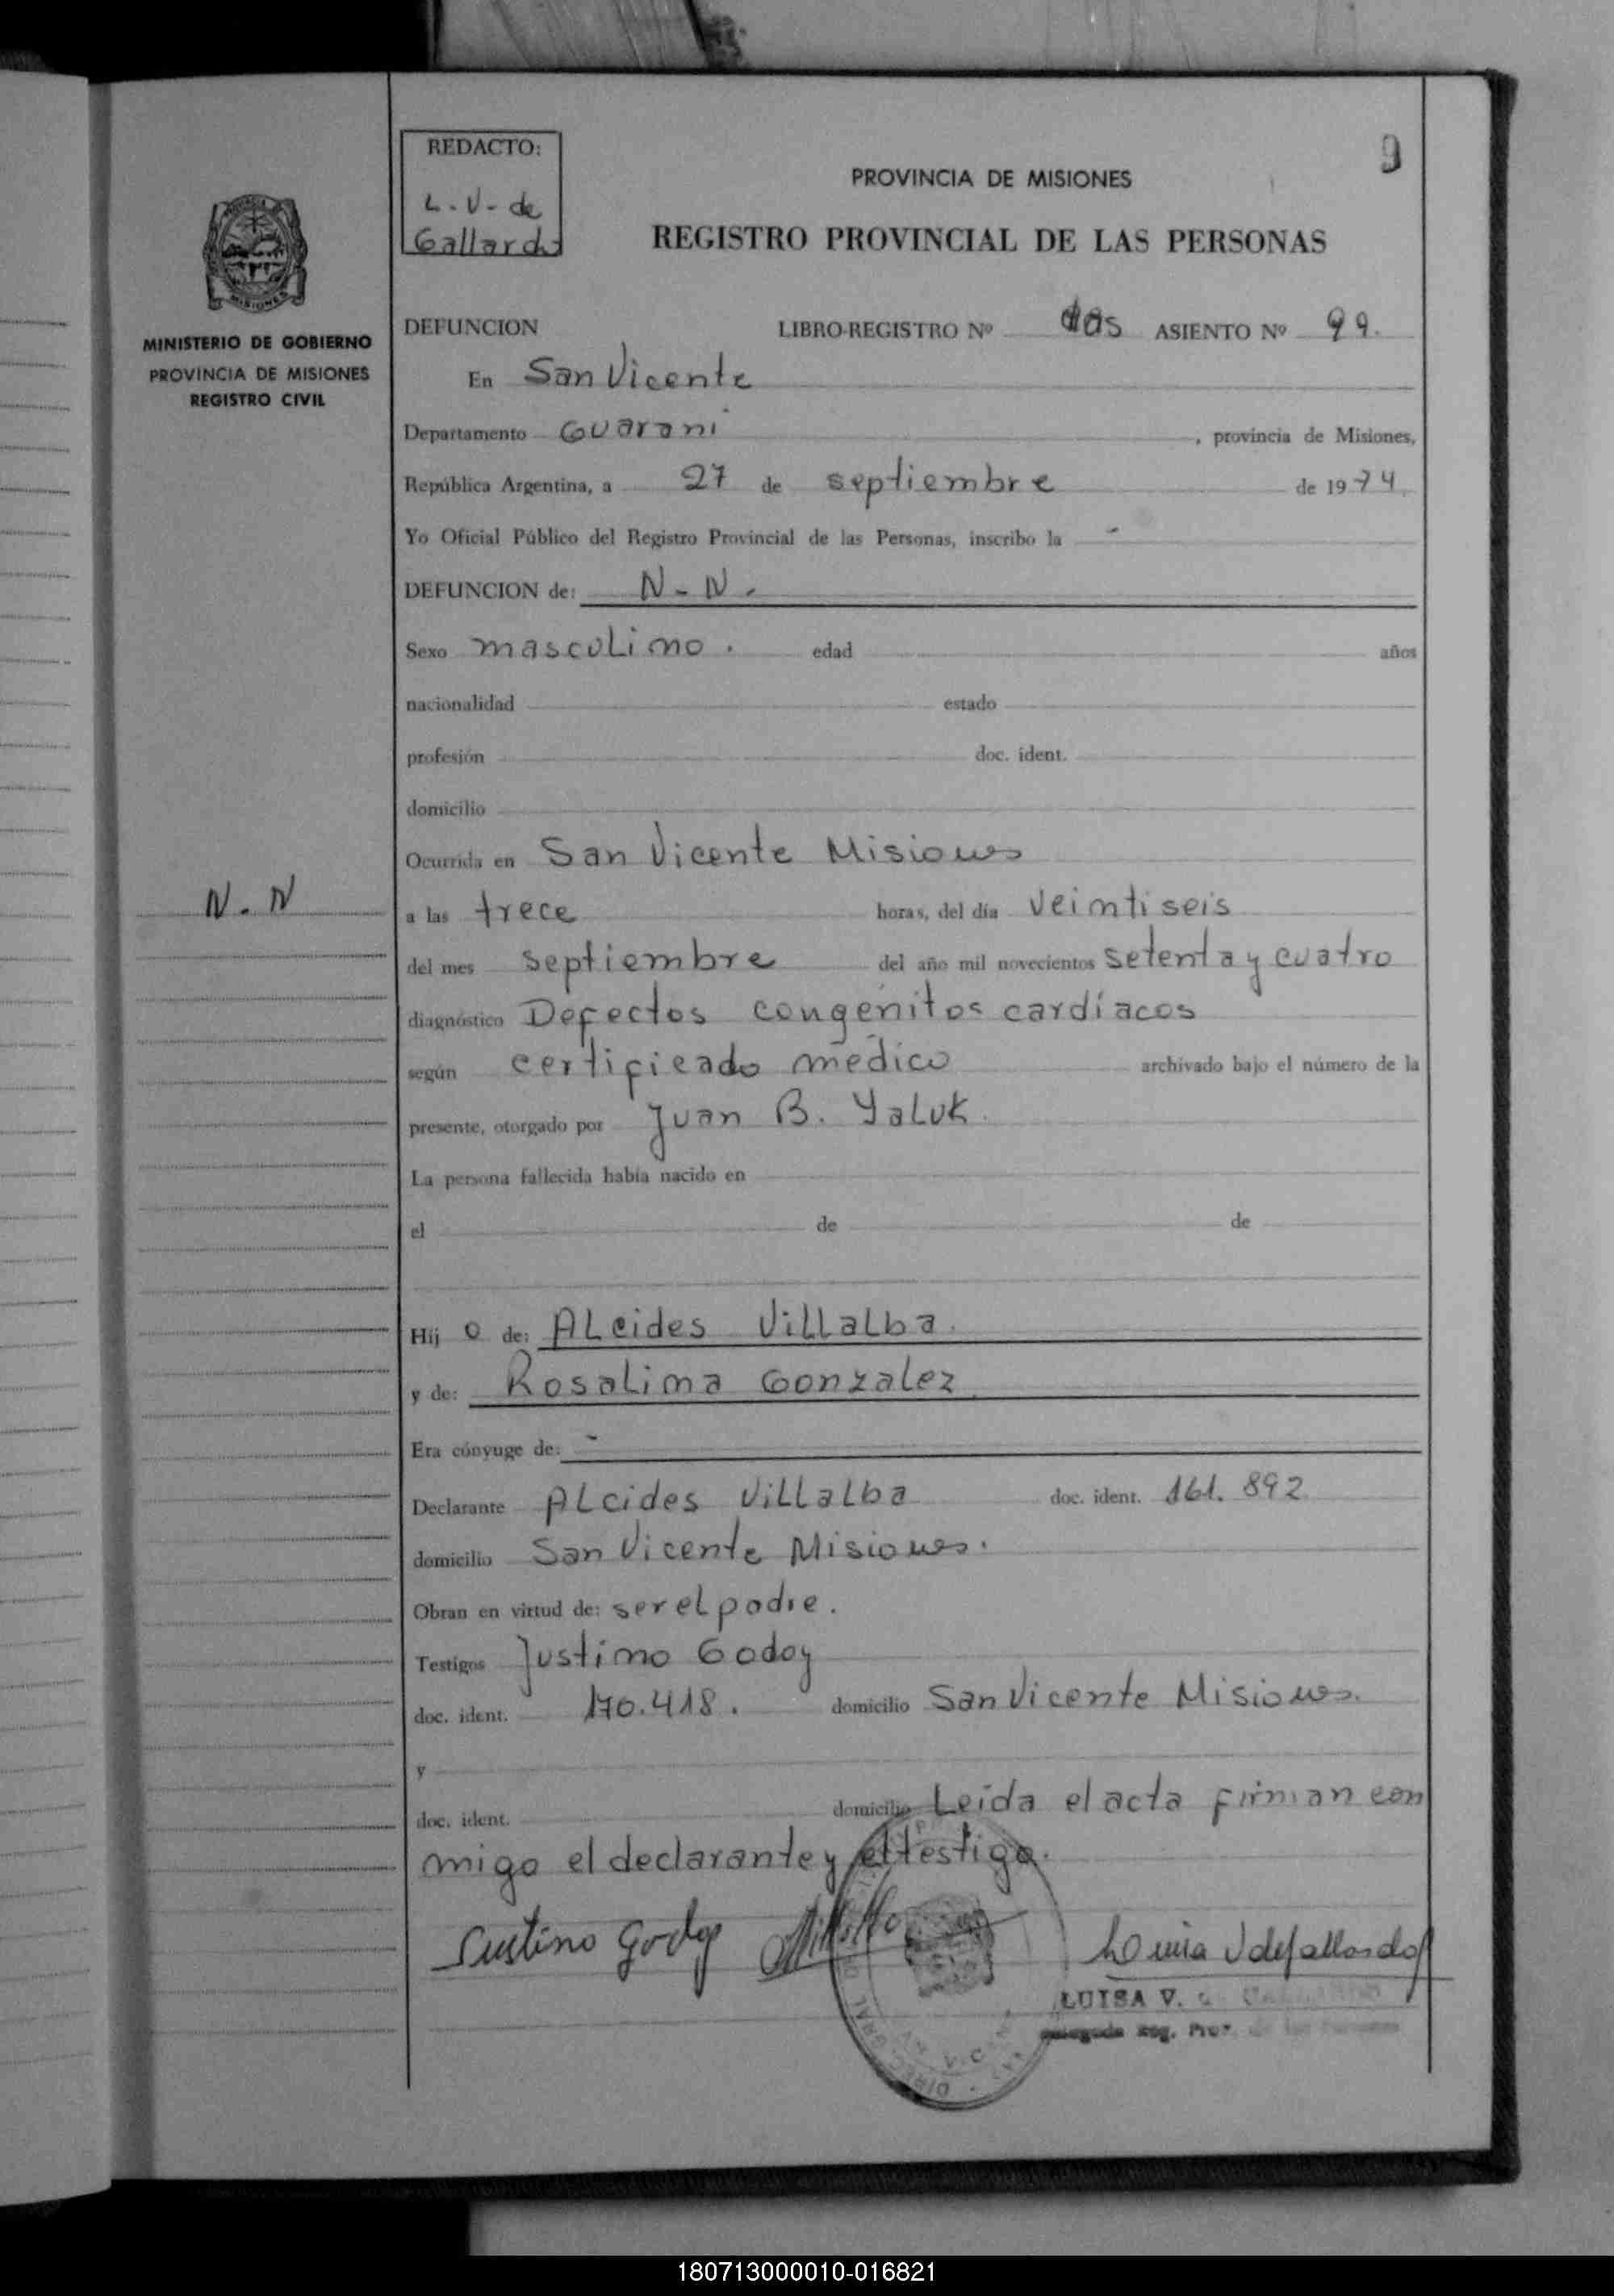 REDACTO:
L.V. de
Gallardo
9
PROVINCIA DE MISIONES
REGISTRO PROVINCIAL DE LAS PERSONAS
MISIONES
MINISTERIO DE GOBIERNO
PROVINCIA DE MISIONES
REGISTRO CIVIL
DEFUNCION LIBRO-REGISTRO Nº dos ASIENTO Nº 99.
En San Vicente
Departamento Guarani , provincia de Misiones,
República Argentina, a 27 de septiembre de 1974.
Yo Oficial Público del Registro Provincial de las Personas, inscribo la -
DEFUNCION de: N-N.
Sexo masculino. edad años
nacionalidad estado
profesión doc. ident.
domicilio
Ocurrida en San Vicente Misiones
N.N
a las trece horas, del día veintiseis
del mes septiembre del año mil novecientos setenta y cuatro
diagnóstico Defectos congénitos cardíacos
según certificado médico archivado bajo el número de la
presente, otorgado por Juan B. Yaluk.
La persona fallecida había nacido en
el de de
Hij o de: Alcides Villalba.
y de: Rosalina Gonzalez
Era cónyuge de: -
Declarante Alcides Villalba doc. ident. 161.892
domicilio San Vicente Misiones.
Obran en virtud de: ser el padre.
Testigos Justino Godoy
doc. ident. 170.418. domicilio San Vicente Misiones.
y
doc. ident. domicilio Leída el acta firman con
migo el declarante y el testigo.
Justino Godoy Luisa V de Gallardo
LUISA V.
180713000010-016821